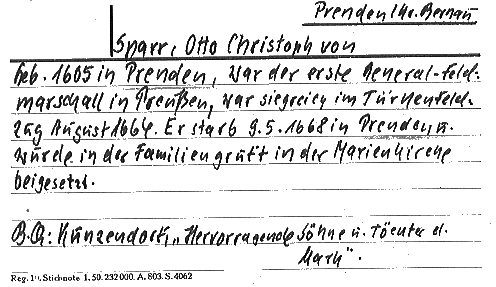 Prenden / Kr. Bernau
Sparr, Otto Christoph von
Geb. 1605 in Prenden, war der erste General-Feld-
marschall in Preußen, war siegreich im Türkenfeld-
zug August 1664. Er starb 9.5.1668 in Prenden u.
wurde in der Familiengruft in der Marienkirche
beigesetzt.
B.Q: Kunzendorf, „Hervorragende Söhne u. Töchter d.
Mark".
Reg. Stichnote 1. 50. 232000. A. 803. S. 4062